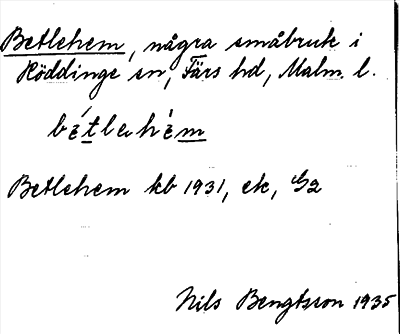 Betlehem, några småbruk i
Röddinge sn, Färs hd, Malm. l.
bétlehèm
Betlehem kb 1931, ek,
Nils Bengtsson 1935